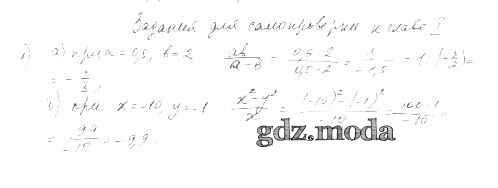 Задания для самопроверки к главе I
1) а) при a = 0,5, b = 2 ab/(a - b) = (0,5·2)/(0,5-2) = 1/(-1,5) = 1·(-2/3) =
= -2/3.
б) при x = -10, y = -1 (x² - y²)/x = ((-10)² - (-1)²)/(-10) = (100-1)/(-10) =
= 99/-10 = -9,9.
gdz.moda